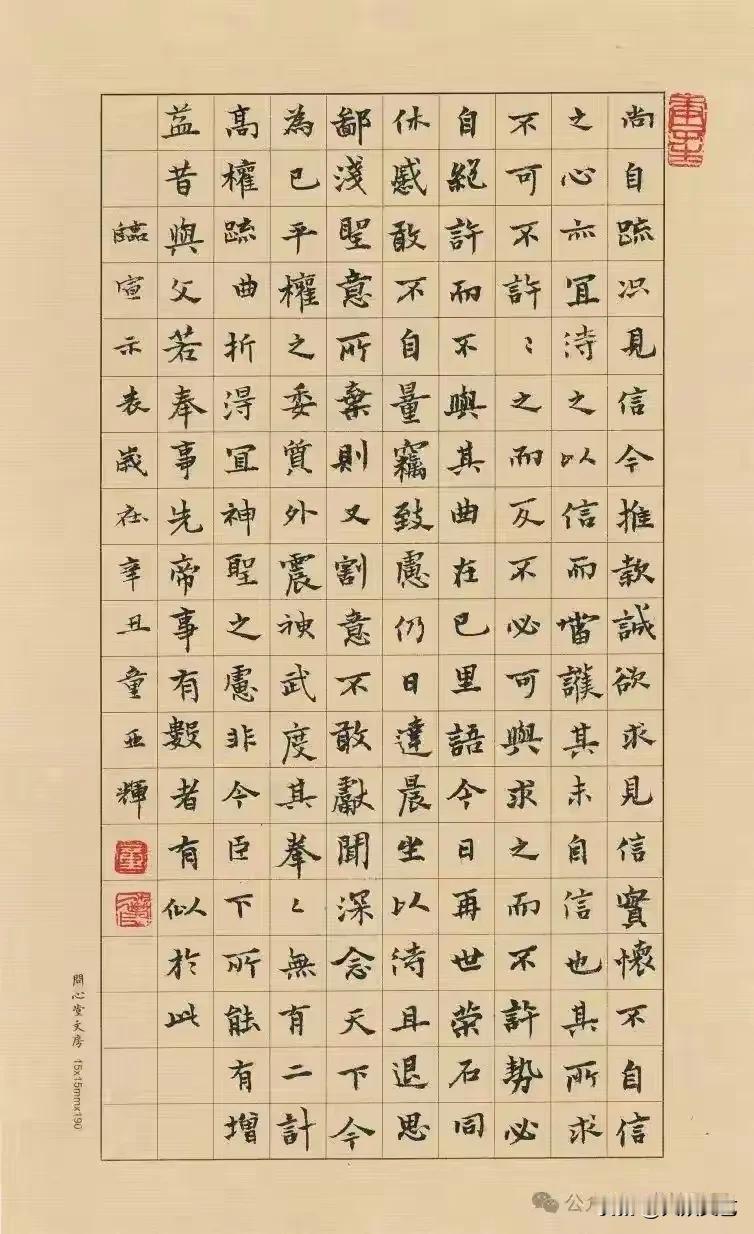 尚自疏況見信今推款誠欲求見信實懷不自信
之心亦宜待之以信而當護其未自信也其所求
不可不許〻之而反不必可與求之而不許勢必
自絕許而不與其曲在己里語今日再世榮石同
休慼敢不自量竊致慮仍日達晨坐以待旦退思
鄙淺聖意所棄則又割意不敢獻聞深念天下今
為已平權之委質外震神武度其拳〻無有二計
高權疏曲折得宜神聖之慮非今臣下所能有增
益昔與父若奉事先帝事有數者有似於此
臨宣示表歲在辛丑童亞輝
問心堂文房 15x15mmx190